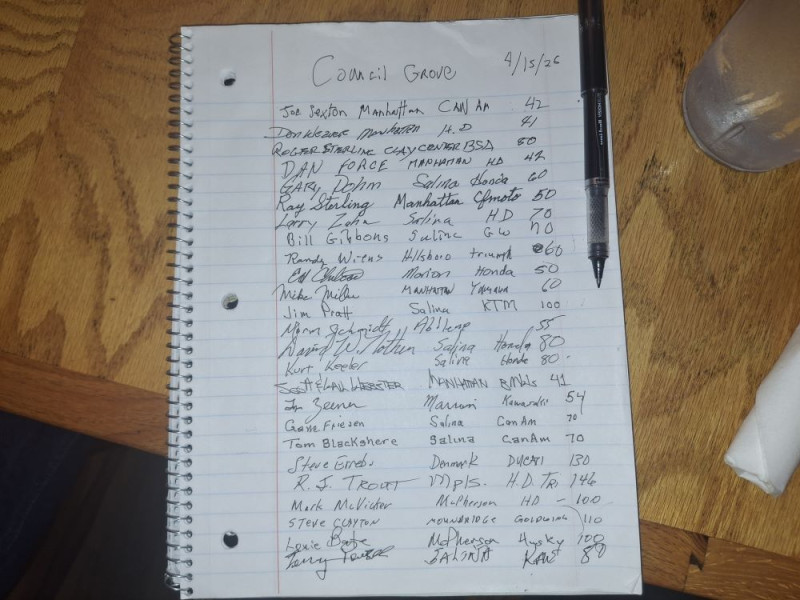 Council Grove 4/15/26
Joe Sexton Manhattan CAN Am 42
Don Weaver Manhattan H.D 41
ROGER STERLING CLAY CENTER BSA 50
DAN FORCE MANHATTAN HD 42
GARY Dohm Salina Honda 60
Ray Sterling Manhattan Cfmoto 50
Larry Zohn Salina HD 70
Bill Gibbons Salina GW 70
Randy Wiens Hillsboro triumph 60
Ed Marion Honda 50
Mike Miller MANHATTAN YAMAHA 60
Jim Pratt Salina KTM 100
Norm Schmidt Abilene 55
David W. Salina Honda 80
Kurt Keeler Salina Honda 80
WEBSTER MANHATTAN 41
Zeener 54
Gene Friesen Salina CanAm 70
Tom Blackshere Salina CanAm 70
Steve Denmark DUCATI 130
R. J. TROUT Mpls. H.D. Tri 146
Mark McVicker McPherson HD - 100
STEVE CLAYTON MOUNDRIDGE GOLDWING 110
Lonie McPherson Husky 100
Terry SALINA KAW 80